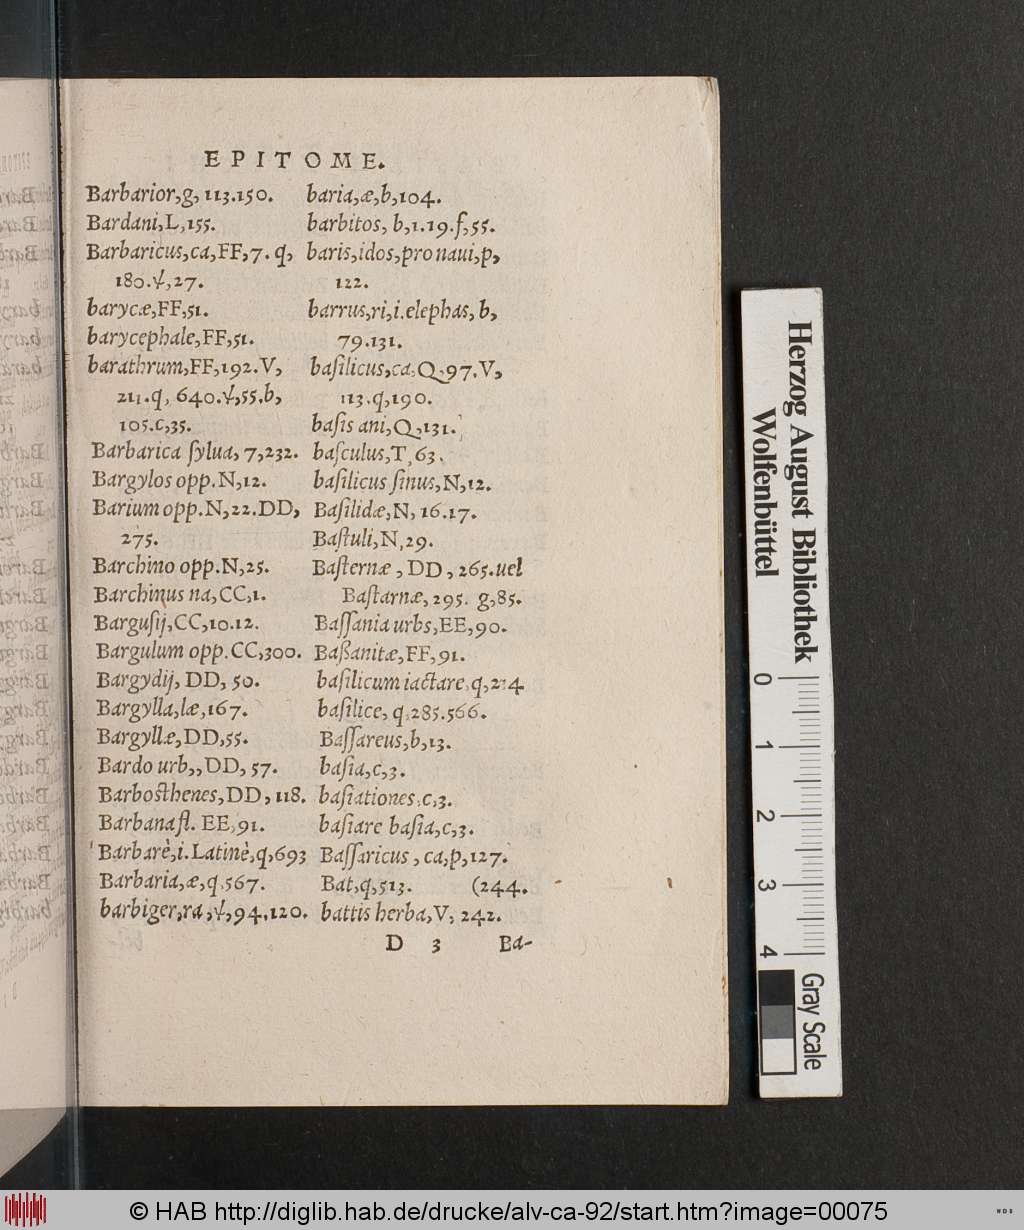 EPITOME.
Barbarior,g, 113.150.
Bardani,L,155.
Barbaricus,ca,FF,7. q,
180.ψ,27.
barycæ,FF,51.
barycephale,FF,51.
barathrum,FF,192.V,
211.q, 640.ψ,55.b,
105.c,35.
Barbarica ſylua, 7,232.
Bargylos opp.N,12.
Barium opp.N,22.DD,
275.
Barchino opp.N,25.
Barchinus na,CC,1.
Barguſij,CC,10.12.
Bargulum opp.CC,300.
Bargydij, DD, 50.
Bargylla,læ,167.
Bargyllæ,DD,55.
Bardo urb,,DD, 57.
Barbosthenes,DD, 118.
Barbana fl. EE,91.
Barbarè,i.Latinè,q,693
Barbaria,æ,q,567.
barbiger,ra,ψ,94,120.
baria,æ,b,104.
barbitos, b,1.19.f,55.
baris,idos,pro naui,p,
122.
barrus,ri,i.elephas, b,
79.131.
baſilicus,ca,Q,97.V,
113.q,190.
baſis ani,Q,131.
baſculus,T,63.
baſilicus ſinus,N,12.
Baſilidæ,N, 16.17.
Baſtuli,N,29.
Baſternæ, DD, 265.uel
Baſtarnæ, 295. g,85.
Baſſania urbs,EE,90.
Baßanitæ,FF,91.
baſilicum iactare,q,
baſilice, q,285.566.
Baſſareus,b,13.
baſia,c,3.
baſiationes,c,3.
baſiare baſia,c,3.
Baſſaricus, ca,p,127.
Bat,q,513. (244.
battis herba,V, 242.
D 3 Ba-
Herzog August Bibliothek
Wolfenbüttel
0 1 2 3 4
Gray Scale
© HAB http://diglib.hab.de/drucke/alv-ca-92/start.htm?image=00075
WDB